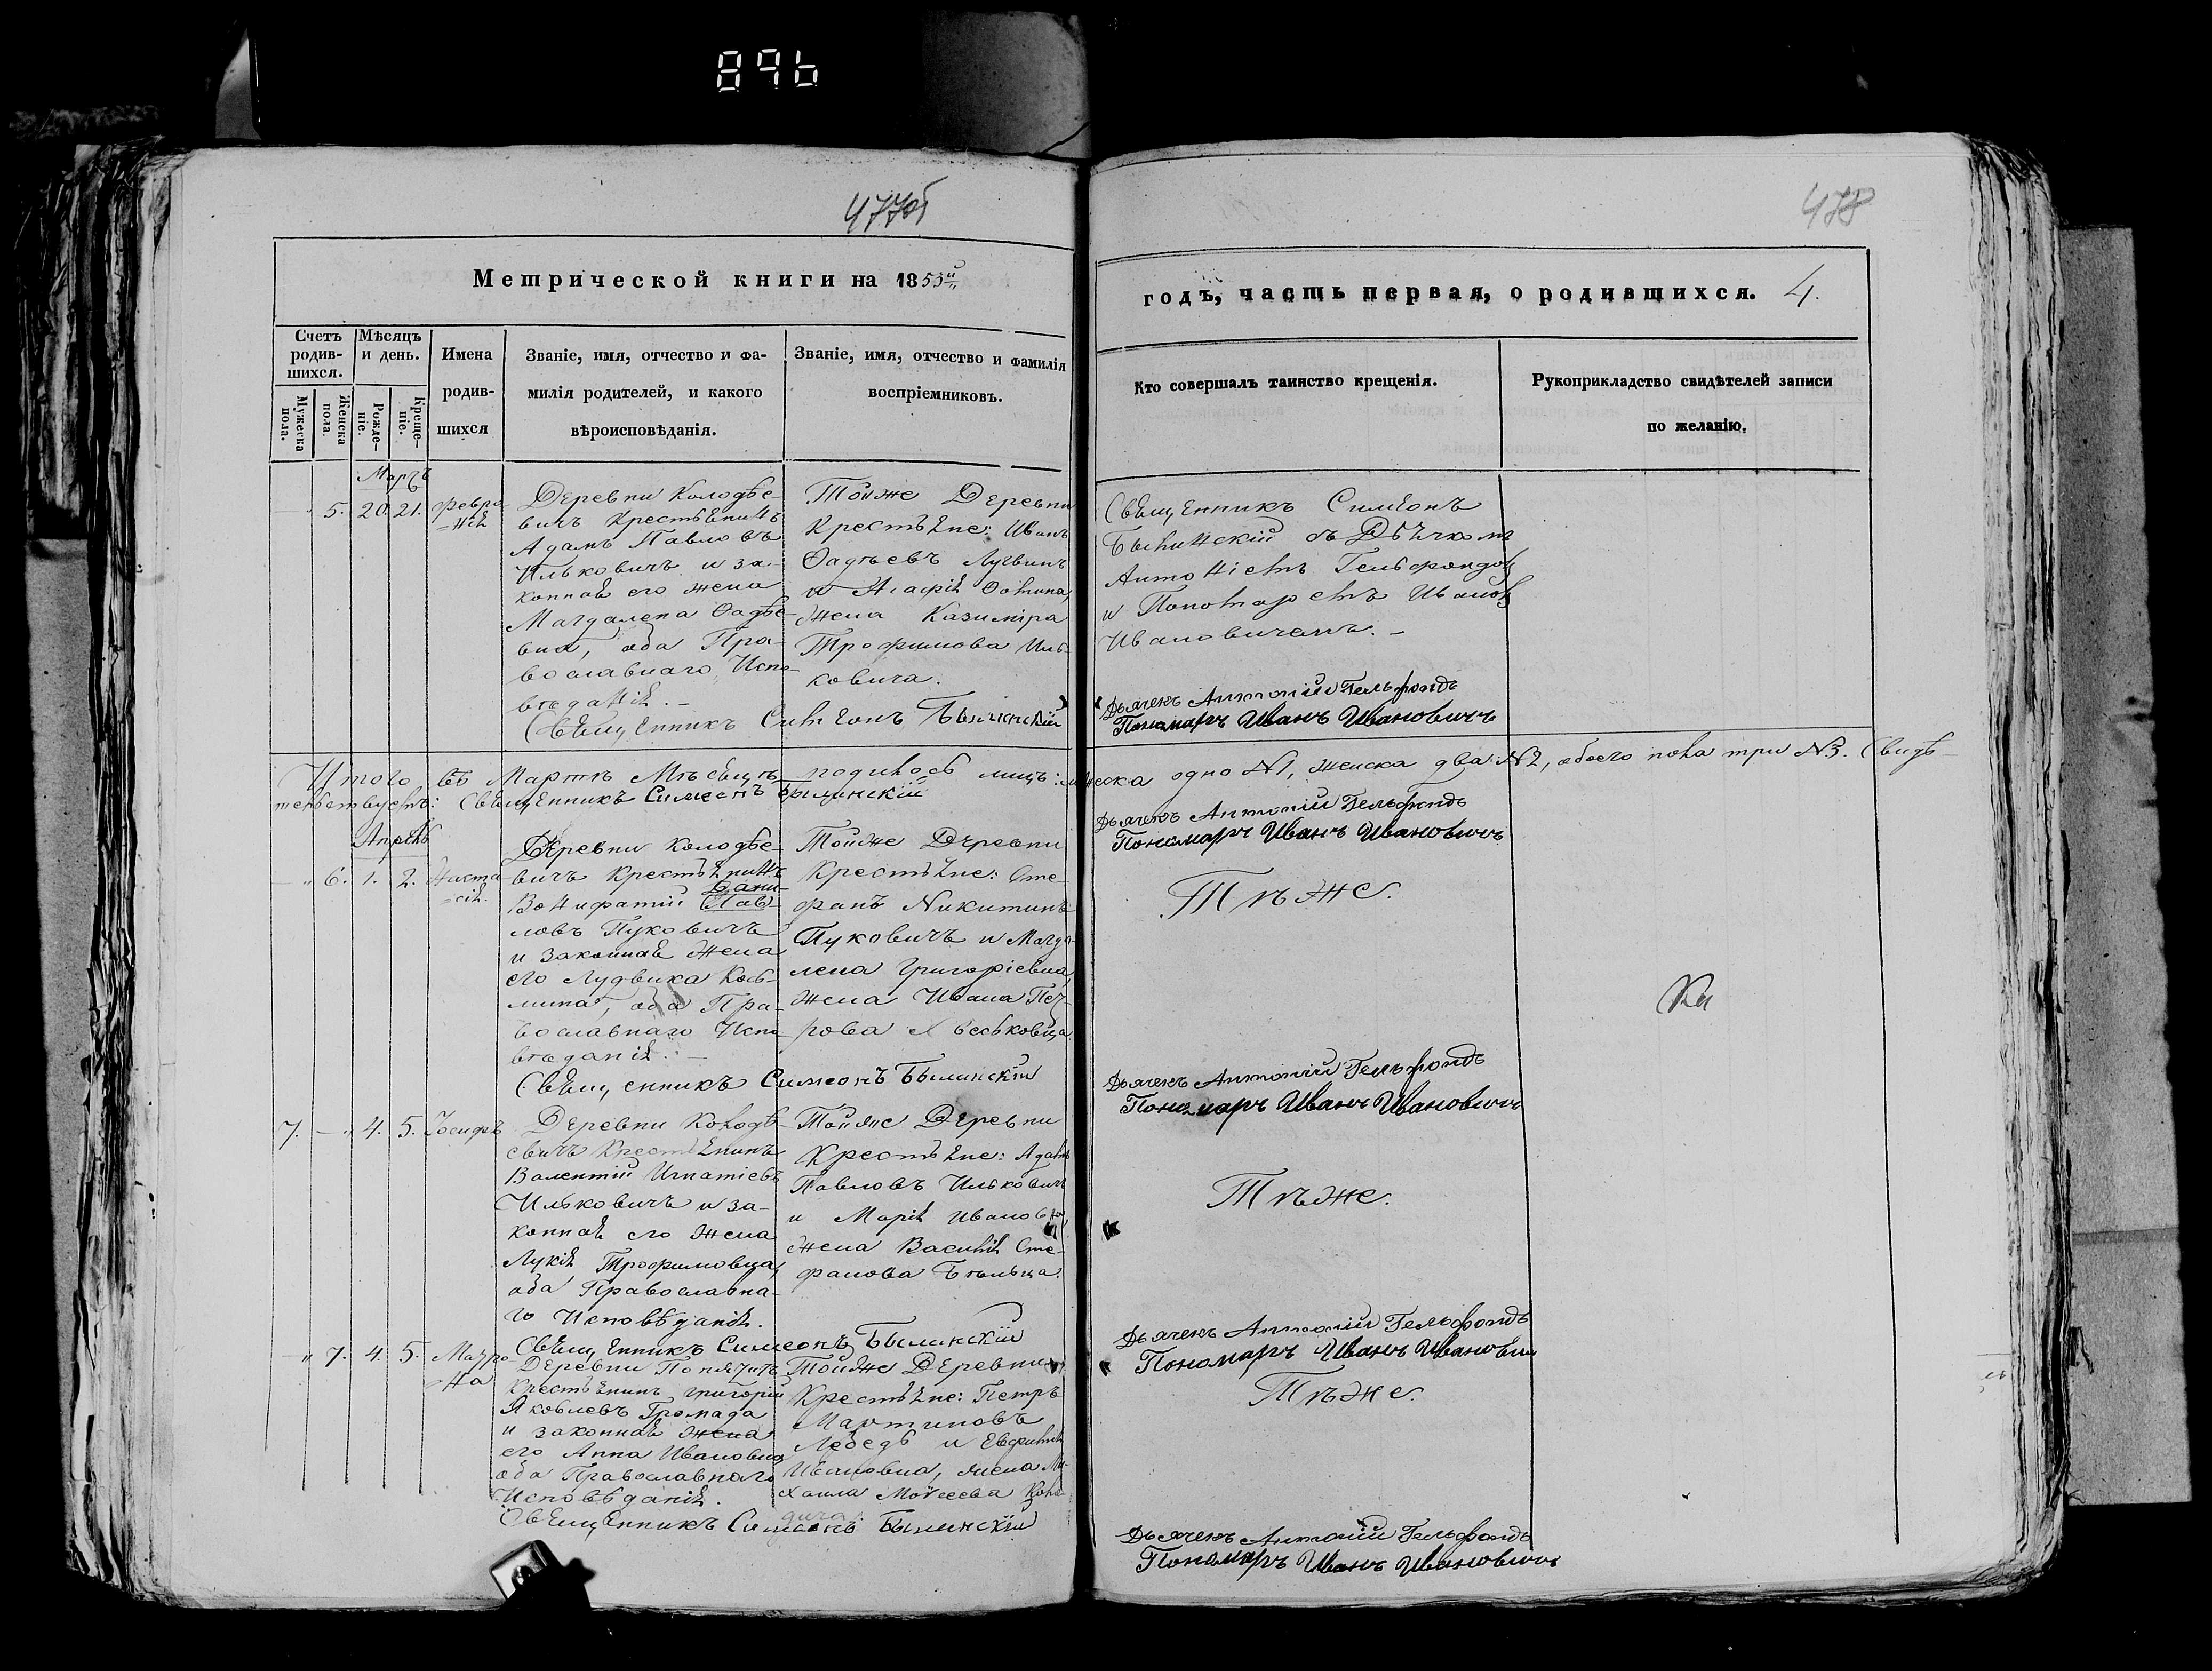 896
477об
478
Метрической книги на 1853й
годъ, часть первая, о родившихся. 4.
Счетъ родив-
шихся.
Мѣсяцъ
и день.
Мужеска пола.
Женска пола.
Рожде-
ніе.
Креще-
ніе.
Имена
родив-
шихся
Званіе, имя, отчество и фа-
милія родителей, и какого
вѣроисповѣданія.
Званіе, имя, отчество и фамилія
воспріемниковъ.
Кто совершалъ таинство крещенія.
Рукоприкладство свидѣтелей записи
по желанію.
Мартъ
5. 20. 21.
Деревни Колодѣе-
вичъ Крестьянинъ
Адамъ Павловъ
Ильковичъ и за-
конная его жена
Магдалена Фадѣе-
вна, оба Пра-
вославнаго Испо-
вѣданія. –
Тойже Деревни
Крестьяне: Иванъ
Фадѣевъ Лугвинъ
и Агафія Фомина,
жена Казиміра
Трофимова Иль-
ковича.
Священникъ Симеонъ
Былинскій съ Дьячкомъ
Антоніемъ Гельфондомъ
и Пономаремъ Иваномъ
Ивановичемъ. –
Священникъ Симеонъ Былинскій
Дьячекъ Антоній Гельфондъ
Пономарь Иванъ Ивановичъ
Итого въ Мартѣ Мѣсяцѣ родилось лицъ: мужеска одно №1, женска два №2, обоего пола три №3. Свидѣ-
тельствуемъ: Священникъ Симеонъ Былинскій
Дьячекъ Антоній Гельфондъ
Пономарь Иванъ Ивановичъ
Апрѣль
6. 1. 2. Анста-
сія.
Деревни Колодѣе-
вичъ Крестьянинъ
Вонифатій Павловъ
Пуковичъ
и законная жена
его Лудвика Кось-
мина, оба Пра-
вославнаго Испо-
вѣданія. –
Тойже Деревни
Крестьяне: Сте-
фанъ Никитинъ
Пуковичъ и Магда-
лена Григоріевна,
жена Ивана Пет-
рова
Тѣже.
Священникъ Симеонъ Былинскій
Дьячекъ Антоній Гельфондъ
Пономарь Иванъ Ивановичъ
7. – 4. 5. Іосифъ
Деревни Колодѣ-
евичъ Крестьянинъ
Валентій Игнатіевъ
Ильковичъ и за-
конная его жена
Лукія Трофимовна,
оба Православна-
го Исповѣданія.
Тойже Деревни
Крестьяне: Адамъ
Павловъ Ильковичъ
и Марія Ивановна,
жена Василія Сте-
фанова
Тѣже.
Священникъ Симеонъ Былинскій
Дьячекъ Антоній Гельфондъ
Пономарь Иванъ Ивановичъ
7. 4. 5. Матро-
на
Деревни
Крестьянинъ Григорій
Яковлевъ Громада
и законная жена
его Анна Ивановна
оба Православнаго
Исповѣданія.
Тойже Деревни
Крестьяне: Петръ
Мартиновъ
Лебедь и Евфимія
Ивановна, жена Ми-
хаила Моѵсеева
Тѣже.
Священникъ Симеонъ Былинскій
Дьячекъ Антоній Гельфондъ
Пономарь Иванъ Ивановичъ